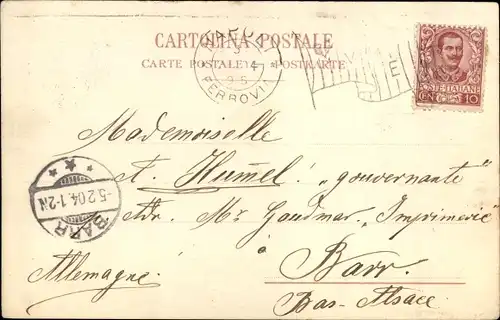 CARTOLINA POSTALE
CARTE POSTALE POSTKARTE
FERROVIA
POSTE ITALIANE
CENT 10
Mademoiselle
A. Hummel. "gouvernante"
Adr. Mr Goudmar "Imprimerie"
BARR
5.2.04.1-2N
Barr.
Allemagne.
Bas-Alsace